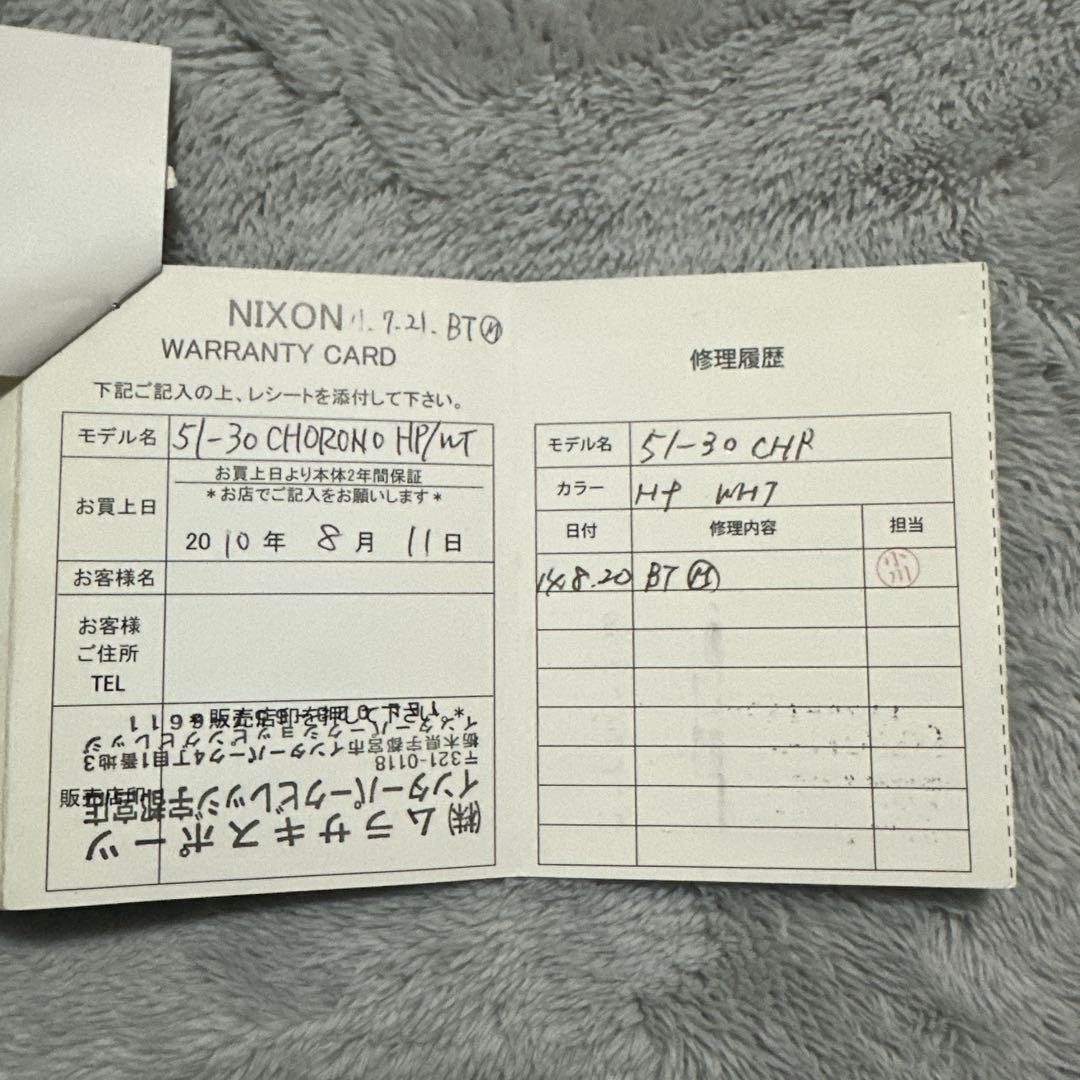 NIXON 11.7.21. BT Ⓜ
WARRANTY CARD
下記ご記入の上、レシートを添付して下さい。
モデル名 51-30 CHORONO HP/WT
お買上日より本体2年間保証
＊お店でご記入をお願いします＊
お買上日 2010年 8月 11日
お客様名
お客様
ご住所
TEL
＊販売店印を押して下さい
販売店印
㈱ムラサキスポーツ
インターパークビレッジ宇都宮店
〒321-0118
栃木県宇都宮市インターパーク4丁目1番地3
インターパークショッピングビレッジ
修理履歴
モデル名 51-30 CHR
カラー HP WHT
日付 修理内容 担当
14.8.20 BT Ⓜ 小川